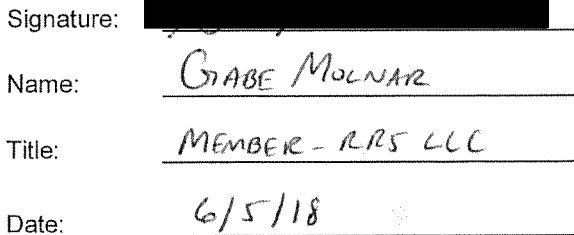 Signature:
Name: GABE MOLNAR
Title: MEMBER - RRS LLC
Date: 6/5/18